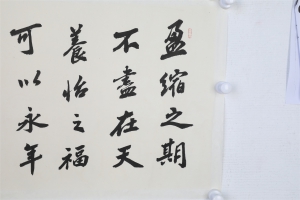 盈縮之期
不盡在天
養怡之福
可以永年